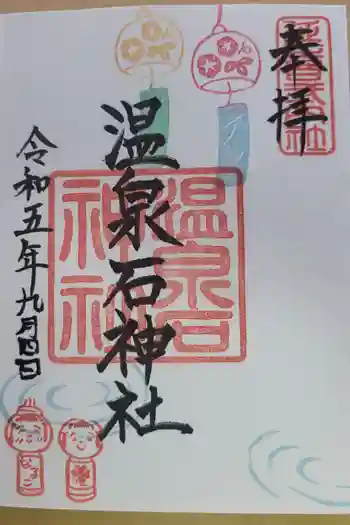 奉拝
温泉石神社
令和五年九月四日
温泉石
神社
なるこ